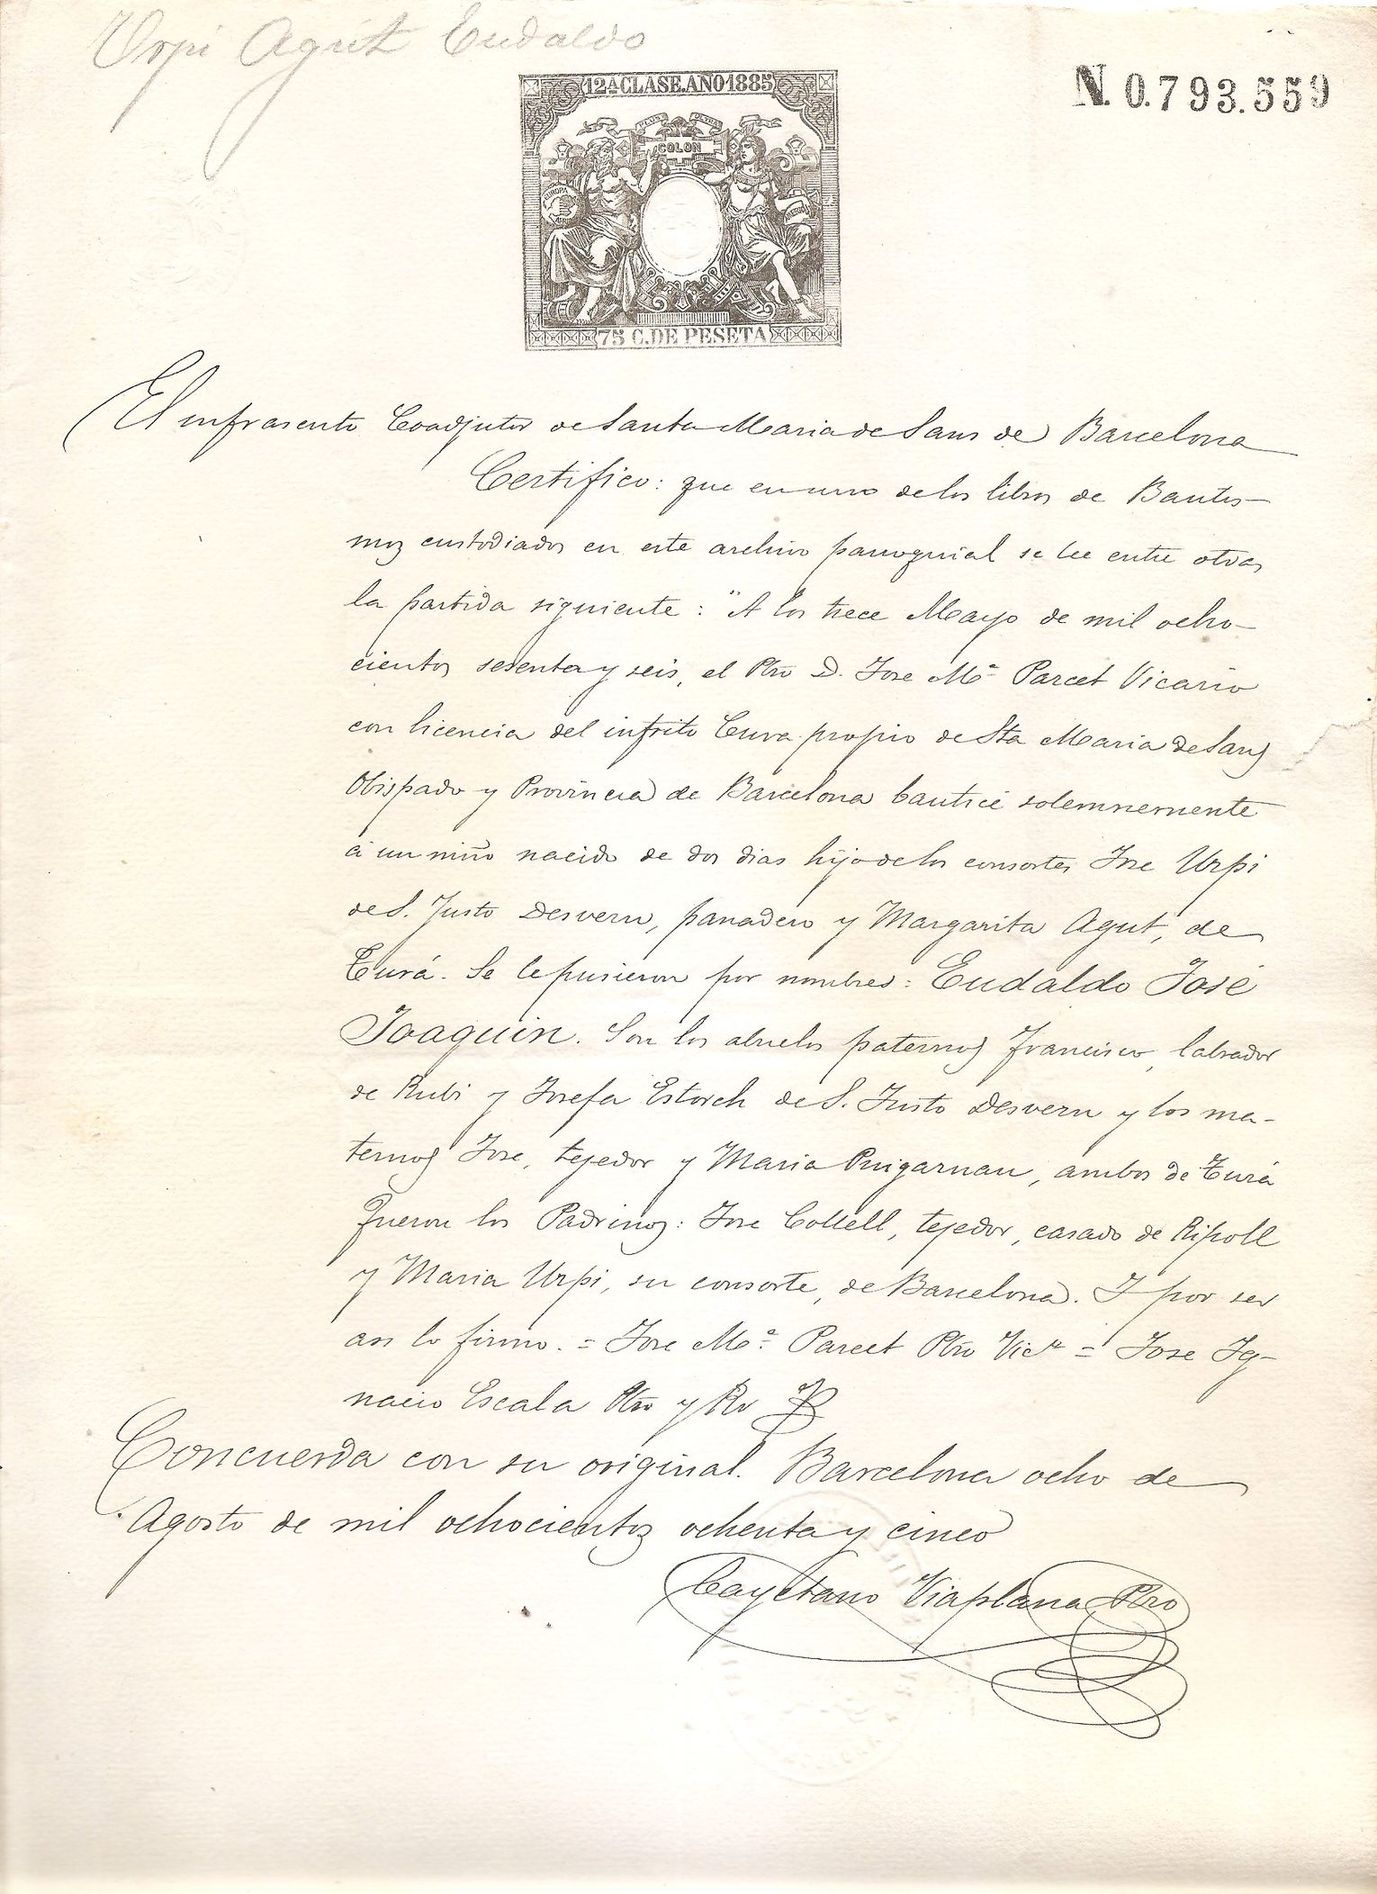 Urpi Agút Eudaldo
12ª CLASE. AÑO 1885
N. 0.793.559
PLUS ULTRA
COLON
EUROPA
75 C. DE PESETA
El infrascrito Coadjutor de Santa Maria de Sans de Barcelona
Certifico: que en uno de los libros de Bautis-
mos custodiados en este archivo parroquial se lee entre otras
la partida siguiente: "A los trece Mayo de mil ocho-
cientos sesenta y seis, el Pbro D. Jose Mª Parcet Vicario
con licencia del infrito Cura propio de Sta Maria de Sans
Obispado y Provincia de Barcelona bauticé solemnemente
á un niño nacido de dos dias hijo de los consortes Jose Urpi
de S. Justo Desvern, panadero y Margarita Agut, de
Turá. Se le pusieron por nombres: Eudaldo José
Joaquin. Son los abuelos paternos Francisco, labrador
de Rubi y Josefa Estorch de S. Justo Desvern y los ma-
ternos Jose, tejedor y Maria Puigarnau, ambos de Turá
Fueron los Padrinos: Jose Collell, tejedor, casado de Ripoll
y Maria Urpi, su consorte, de Barcelona. Y por ser
asi lo firmo. = Jose Mª Parcet Pbro Vicº = Jose Ig-
nacio Escala Pbro y Rr
Concuerda con su original. Barcelona ocho de
Agosto de mil ochocientos ochenta y cinco
Cayetano Viaplana Pbro